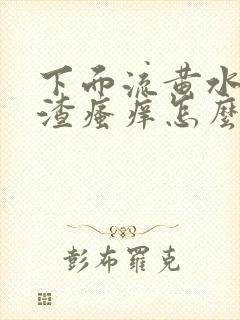 下面流黄水
渣瘙痒怎麽
彭布羅克